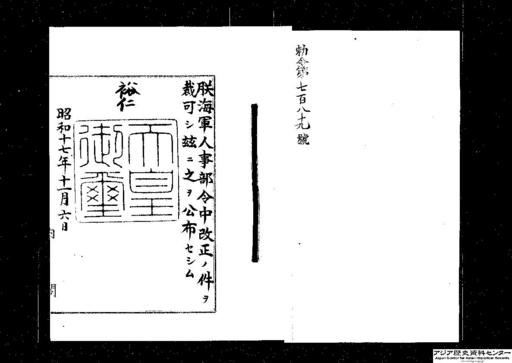 勅令第七百八十九號
朕海軍人事部令中改正ノ件ヲ
裁可シ玆ニ之ヲ公布セシム
裕仁
天皇御璽
昭和十七年十一月六日
内閣
アジア歴史資料センター
Japan Center for Asian Historical Records